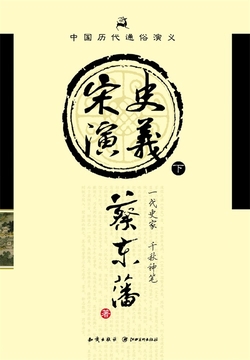 中国历代通俗演义
宋史
演义
下
一代史家 千秋神笔
蔡东藩
著
知识出版社